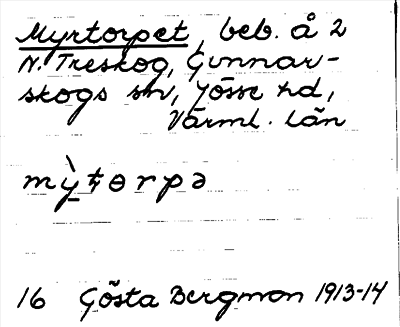 Myrtorpet, beb. å 2
N. Treskog, Gunnar-
skogs sn, Jösse hd,
Värml. län
mỳ̠ŧɵrpə
16 Gösta Bergman 1913-14